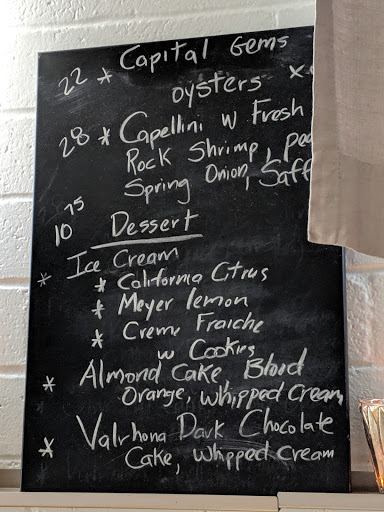 22 * Capital Gems
oysters x
28 * Capellini w Fresh
Rock Shrimp,
Spring Onion,
10 75 Dessert
* Ice Cream
* California Citrus
* Meyer lemon
* Creme Fraiche
w Cookies
* Almond Cake, Blood
Orange, Whipped Cream
* Valrhona Dark Chocolate
Cake, Whipped Cream